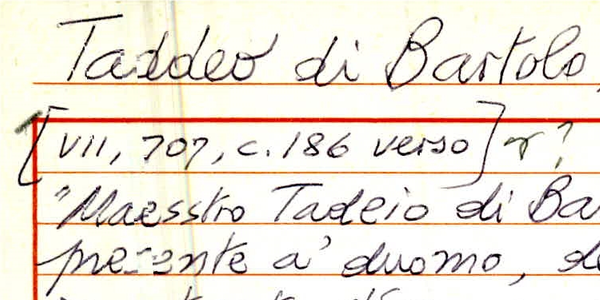 Taddeo di Bartolo,
[VII, 707, c. 186 verso] r?
"Maesstro Tadeio di Ba
presente a' duomo, de